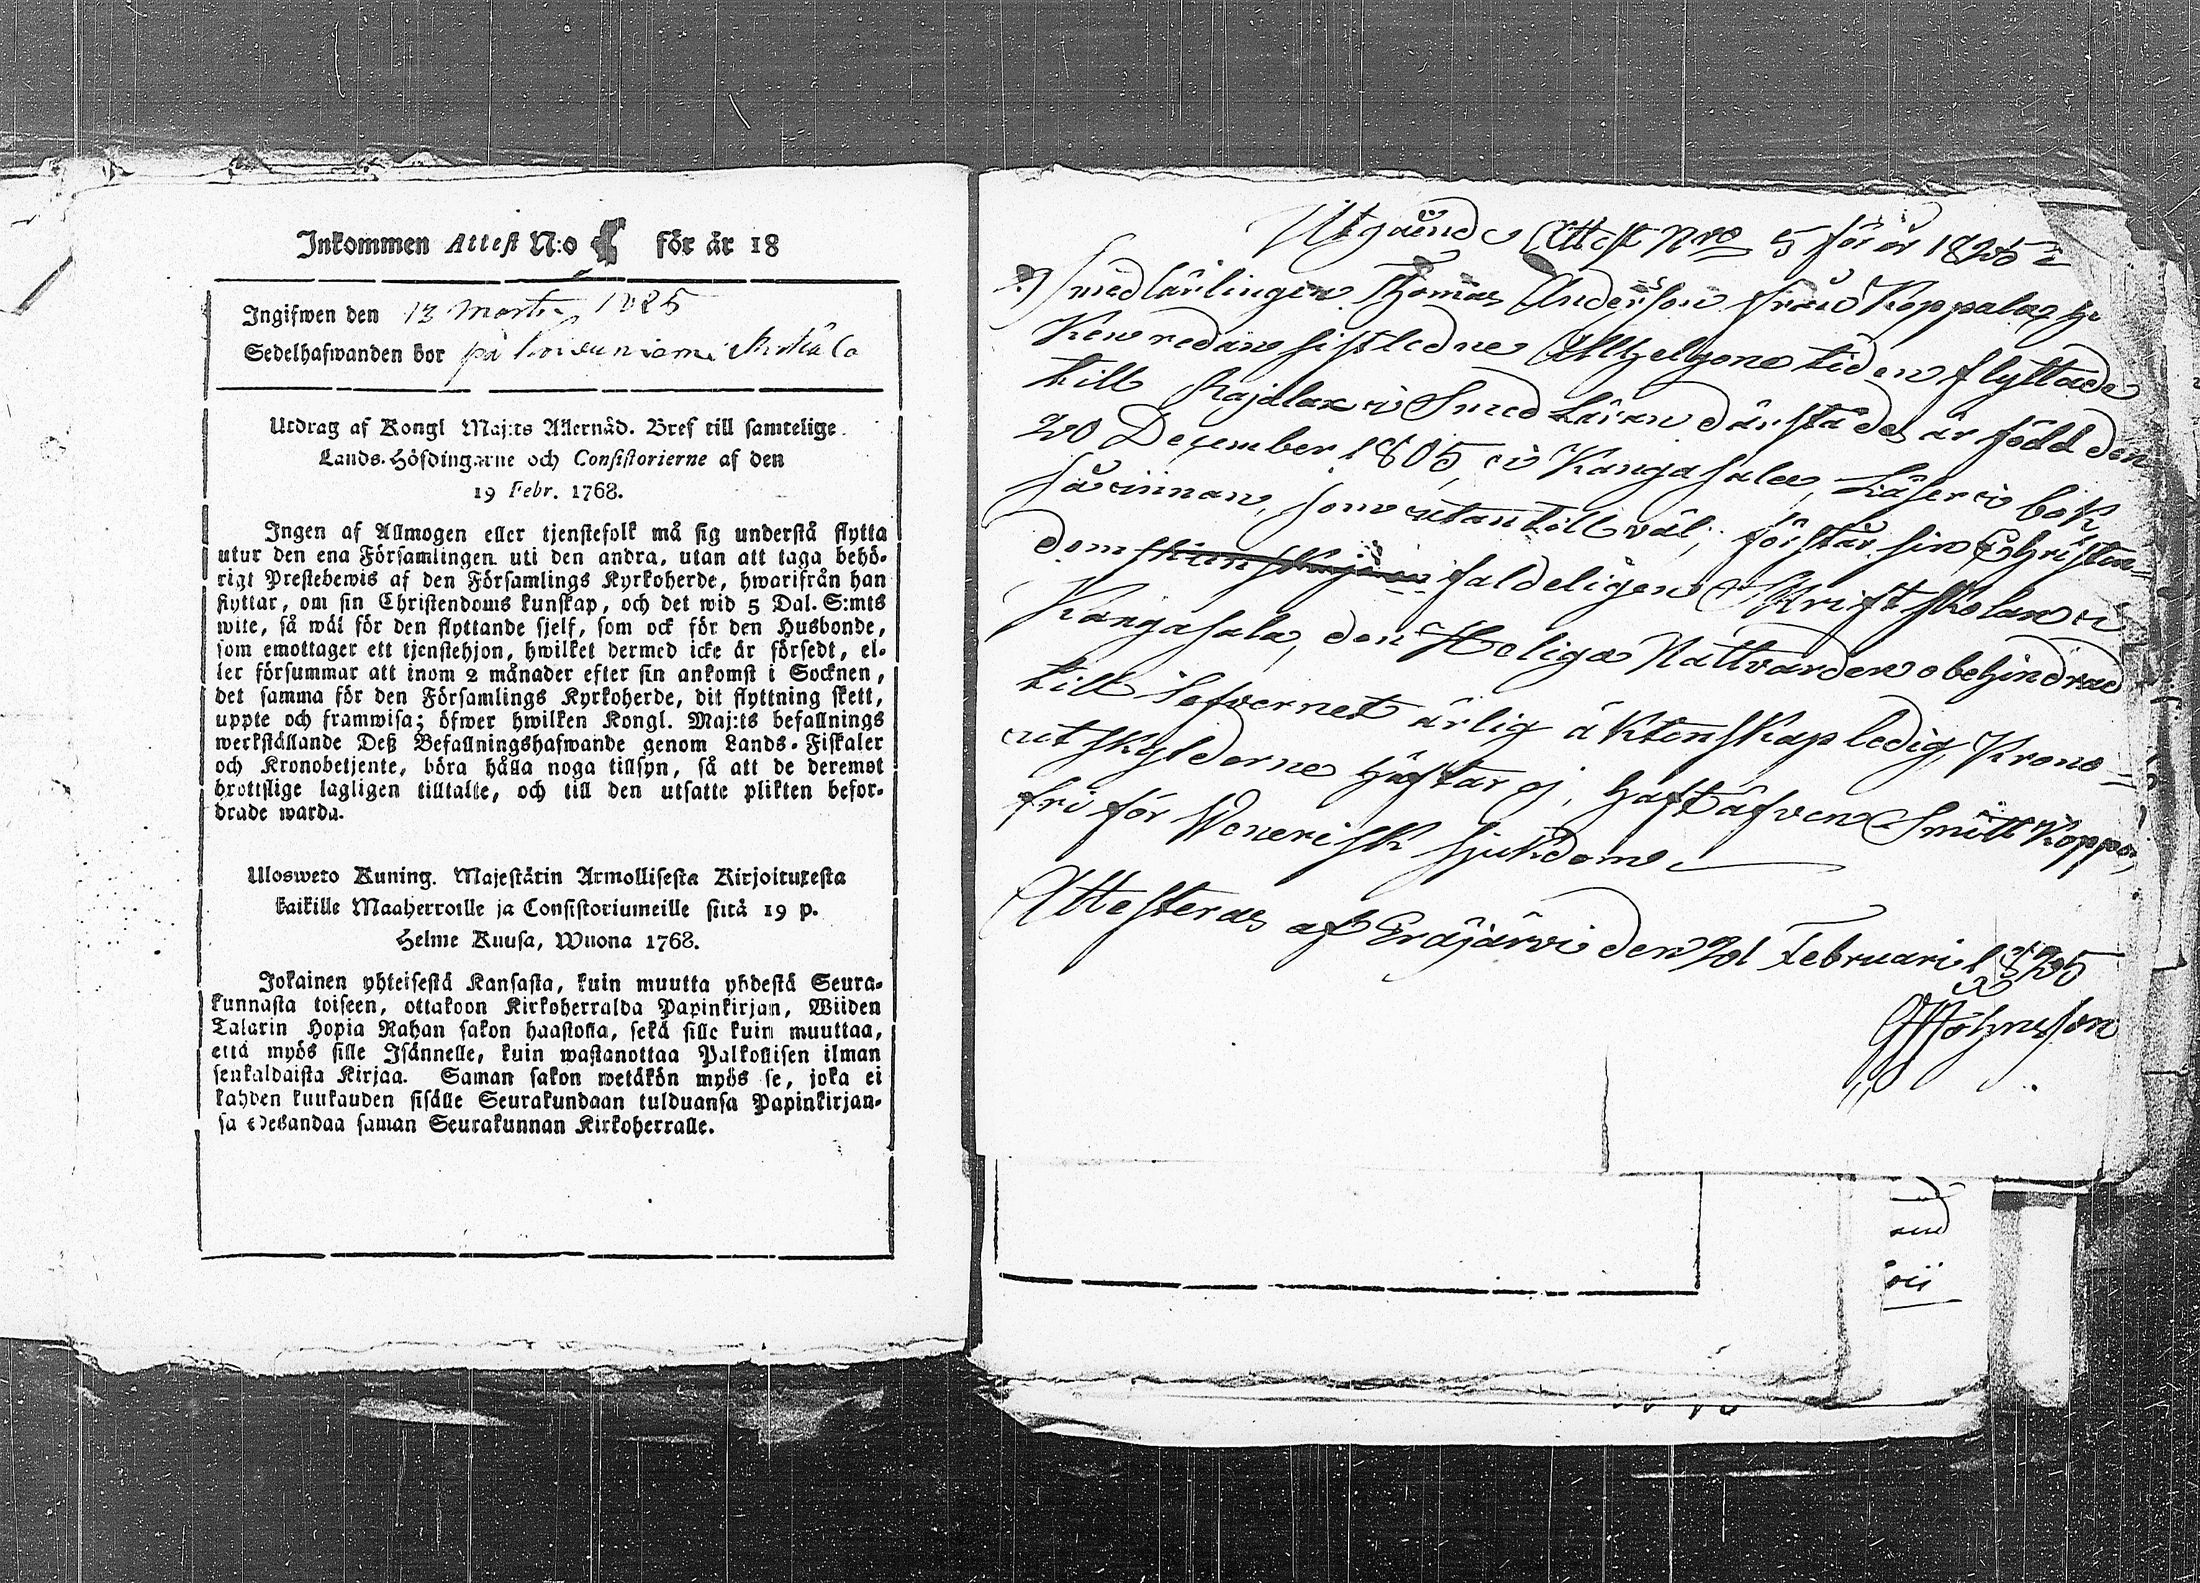 Inkommen Attest N:o för år 18
Ingifwen den 13 Martii 1825
Sedelhafwanden bor på
Utdrag af Kongl Maj:ts Allernåd. Bref till samtelige
Lands-Höfdingarne och Consistorierne af den
19 Febr. 1768.
Ingen af Allmogen eller tjenstefolk må sig understå flytta
utur den ena Församlingen uti den andra, utan att taga behö-
rigt Prestebewis af den Församlings Kyrkoherde, hwarifrån han
flyttar, om sin Christendoms kunskap, och det wid 5 Dal. S:mts
wite, så wäl för den flyttande sjelf, som ock för den Husbonde,
som emottager ett tjenstehjon, hwilket dermed icke är försedt, el-
ler försummar att inom 2 månader efter sin ankomst i Socknen,
det samma för den Församlings Kyrkoherde, dit flyttning skett,
uppte och framwisa; öfwer hwilken Kongl. Maj:ts befallnings
werkställande Deß Befallningshafwande genom Lands-Fiskaler
och Kronobetjente, böra hålla noga tillsyn, så att de deremot
brottslige lagligen tilltalte, och till den utsatte plikten befor-
drade warda.
Ulosweto Kuning. Majestätin Armollisesta Kirjoituxesta
kaikille Maaherroille ja Consistoriumeille siitä 19 p.
Helme Kuusa, Wuona 1768.
Jokainen yhteisestä Kansasta, kuin muutta yhdestä Seura-
kunnasta toiseen, ottakoon Kirkoherralda Papinkirjan, Wiiden
Talarin Hopia Rahan sakon haastolla, sekä sille kuin muuttaa,
että myös sille Isännelle, kuin wastanottaa Palkollisen ilman
senkaldaista Kirjaa. Saman sakon wetäkön myös se, joka ei
kahden kuukauden sisälle Seurakundaan tulduansa Papinkirjan-
sa edesandaa saman Seurakunnan Kirkoherralle.
Utgående Attest Nro 5 för år 1825
Smedlärlingen Thomas Anderson från Koppala, hvil
ken redan sistledne Allhelgone tiden flyttade
till Rajalax i Smed Läran därstädes är född den
20 December 1805, i Kangasala, Läser i bok
så innan, som utantill väl, förstår sin Christen-
dom faldeligen Skriftskolan i
Kangasala, den Heliga Nattvarden obehindrad
till Lefvernet ärlig äktenskap ledig, Krono-
utskylderne häftar ej, haft äfven Smitt Koppor,
fri för Venerisk sjukdom
Attesteras af Eräjärvi den 21 Februari 1825
Johnsson